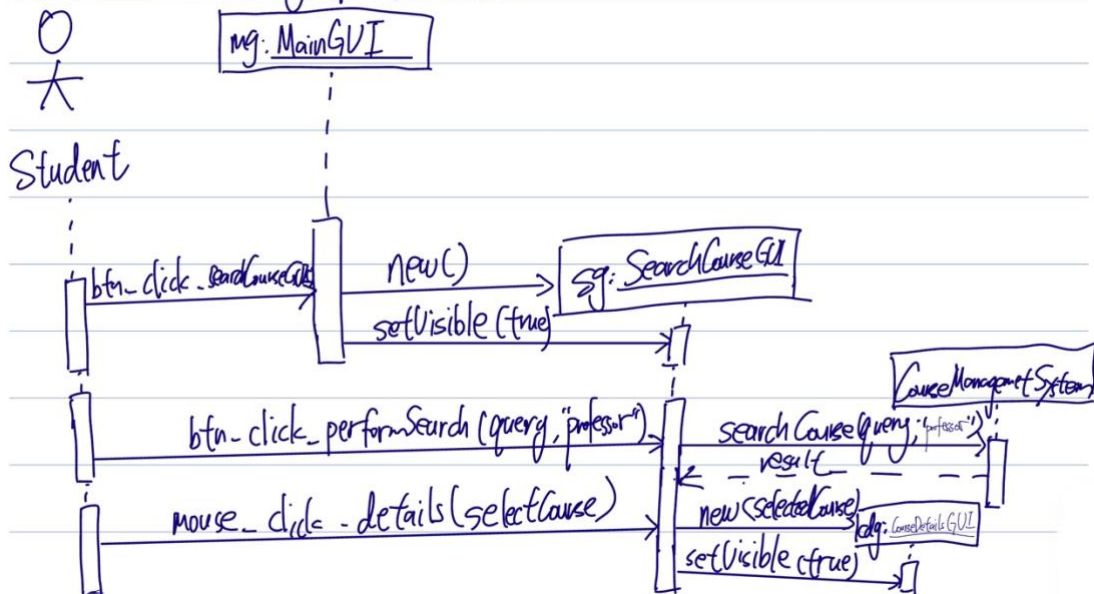 mg: MainGUI
Student
btn_click_searchCourseGUI
new()
sg: SearchCourseGUI
setVisible(true)
CourseManagemetSystem
btn_click_performSearch(query,"professor")
searchCourse(query,"professor")
result
mouse_click_details(selectCourse)
new(selectedCourse)
cdg: CourseDetailsGUI
setVisible(true)